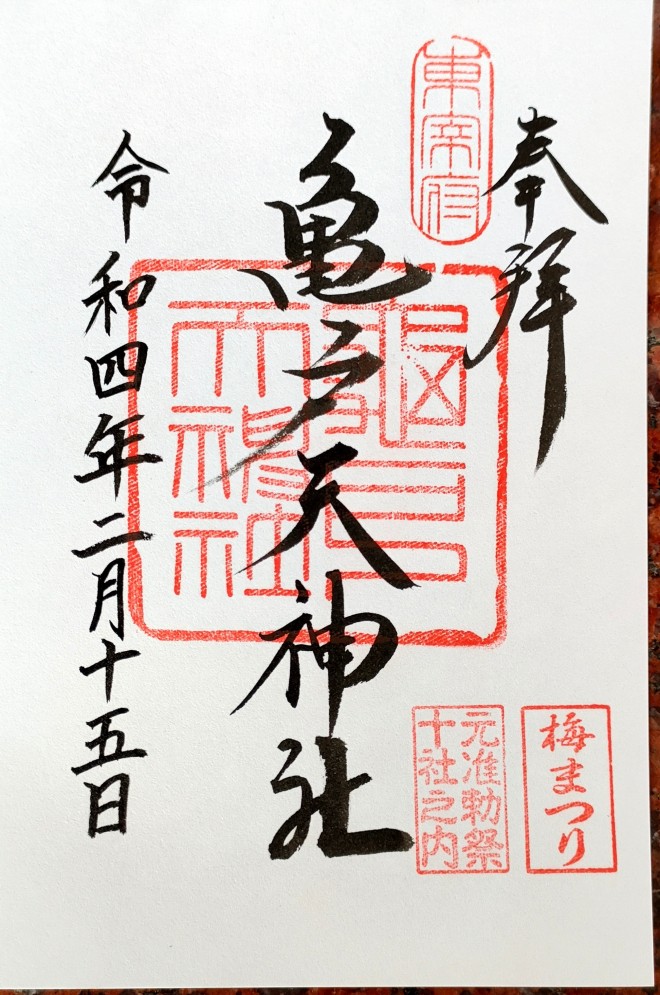 奉拝
東宰府
亀戸天神社
元准勅祭
十社之内
梅まつり
令和四年二月十五日